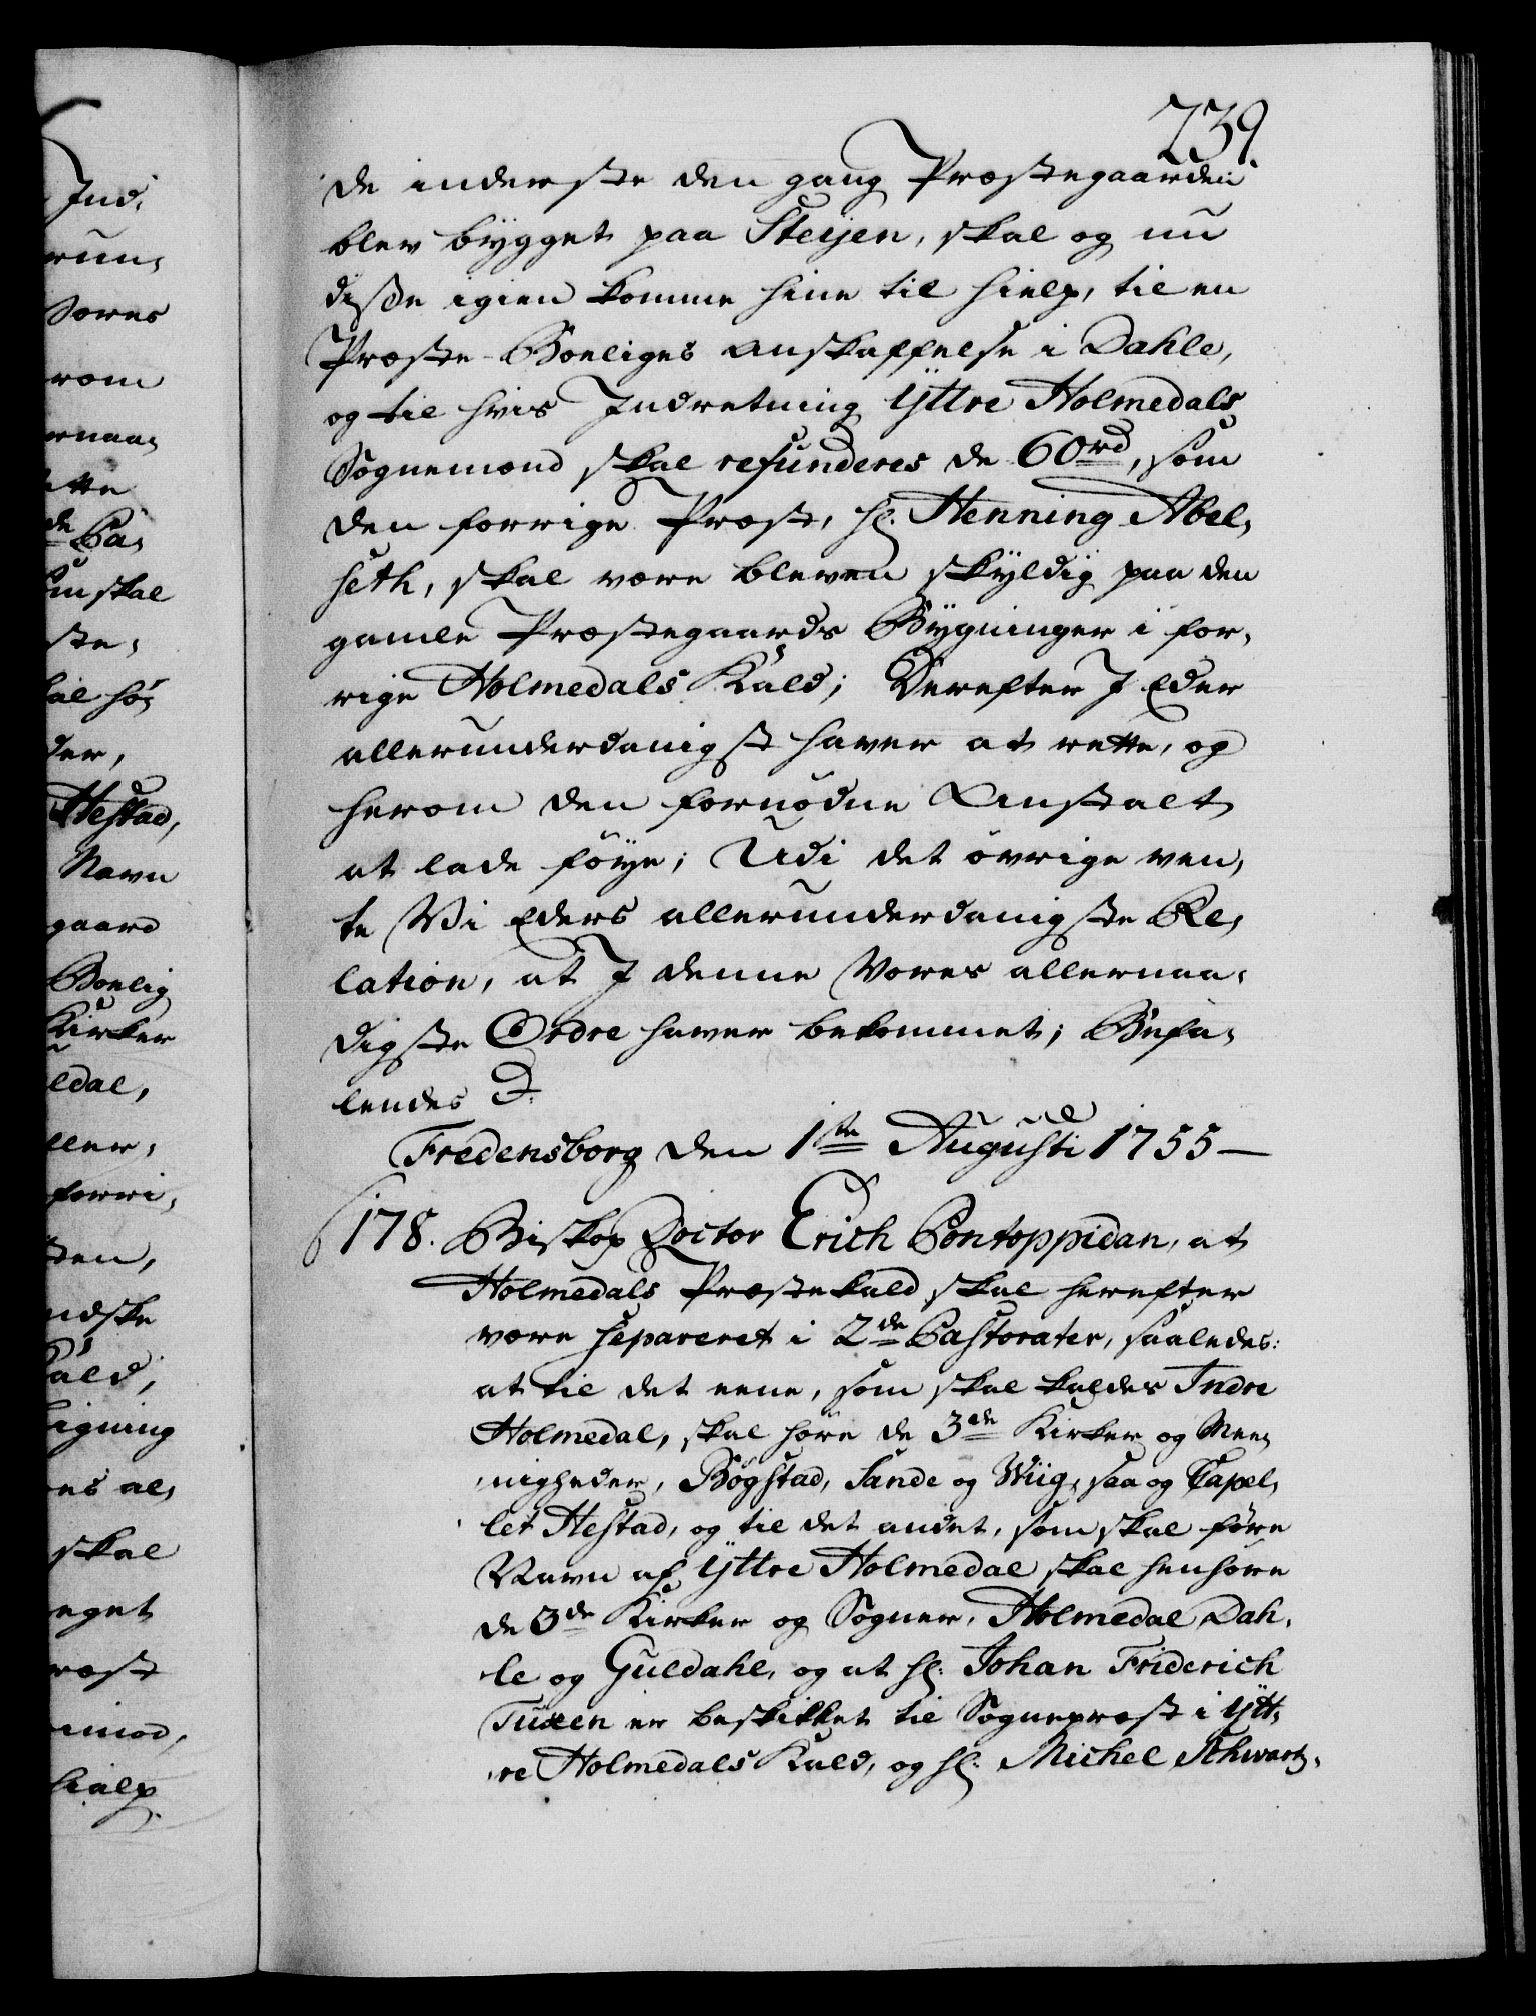 239.
de inderste den gang Præstegaarden
blev bygget paa Steijen, skal og nu
diße igien komme hine til hielp, til en
Præste-Boeliges anskaffelse i Dahle,
og til hvis Indretning Ÿttre Holmedals
Sognemænd skal refunderes de 60 rd, som
den forrige Præst, Hr. Henning Abel,
seth, skal være bleven skÿldig paa den
gamle Præstegaards Bÿgninger i for,
rige Holmedals Kald; Derefter I Eder
allerunderdanigst haver at rette, og
herom den fornødne Anstalt
at lade føÿe; Udi det øvrige ven,
te Vi Eders allerunderdanigste Re,
lation, at I denne Vores allernaa,
digste Ordre haver bekommet; Befa,
lendes D:
Fredensborg den 1ste Augusti 1755 —
178. Biskop Doctor Erich Pontoppidan, at
Holmedals Præstekald skal herefter
være separeret i 2de Pastorater, saaledes:
at til det eene, som skal kaldes Indre
Holmedal, skal høre de 3de Kirker og Mee,
nigheder, Bøgstad, Sande og Wiig, saa og Capel,
let Hestad, og til det andet, som skal føre
Navn af Ÿttre Holmedal skal henhøre
de 3de Kirker og Sogner, Holmedal Dah,
le og Guldahl, og at Hr. Johan Friderich
Tuxen er beskikket til Sognepræst i Ÿtt,
re Holmedals Kald, og Hr. Michel Schwartz,
Ind,
Vores
ette
skal
der,
Hestad,
Navn
gaard
Boelig
Kirker
ldal,
ller,
forri,
skal
hielp